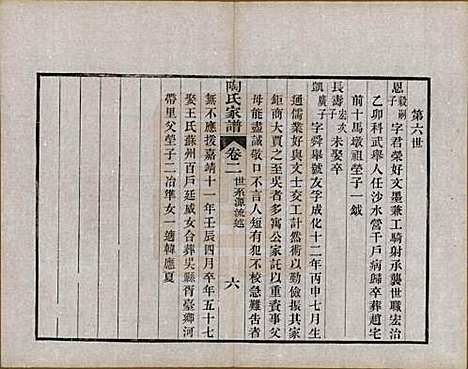 第六世
恩毅嗣子字君榮好文墨兼工騎射承襲世職宏治
乙卯科武舉人任沙水營千戶病歸卒葬趙宅
前十馬墩祖塋子一鉞
長壽宏次子未娶卒
凱廣子字舜舉號友孚成化十二年丙申七月生
通儒業好與文士交工計然術以勤儉振其家
鉅商大賈之至吳者多寓公家託以重貲事父
母能盡誠敬口不言人短有忍不校急難告者
無不應援嘉靖十一年壬辰四月卒年五十七
娶王氏蘇州戶廷威女合葬吳縣胥臺鄉河
帶里父塋子二冶準女一適韓應夏
陶氏家譜
卷二
世系源流述
六